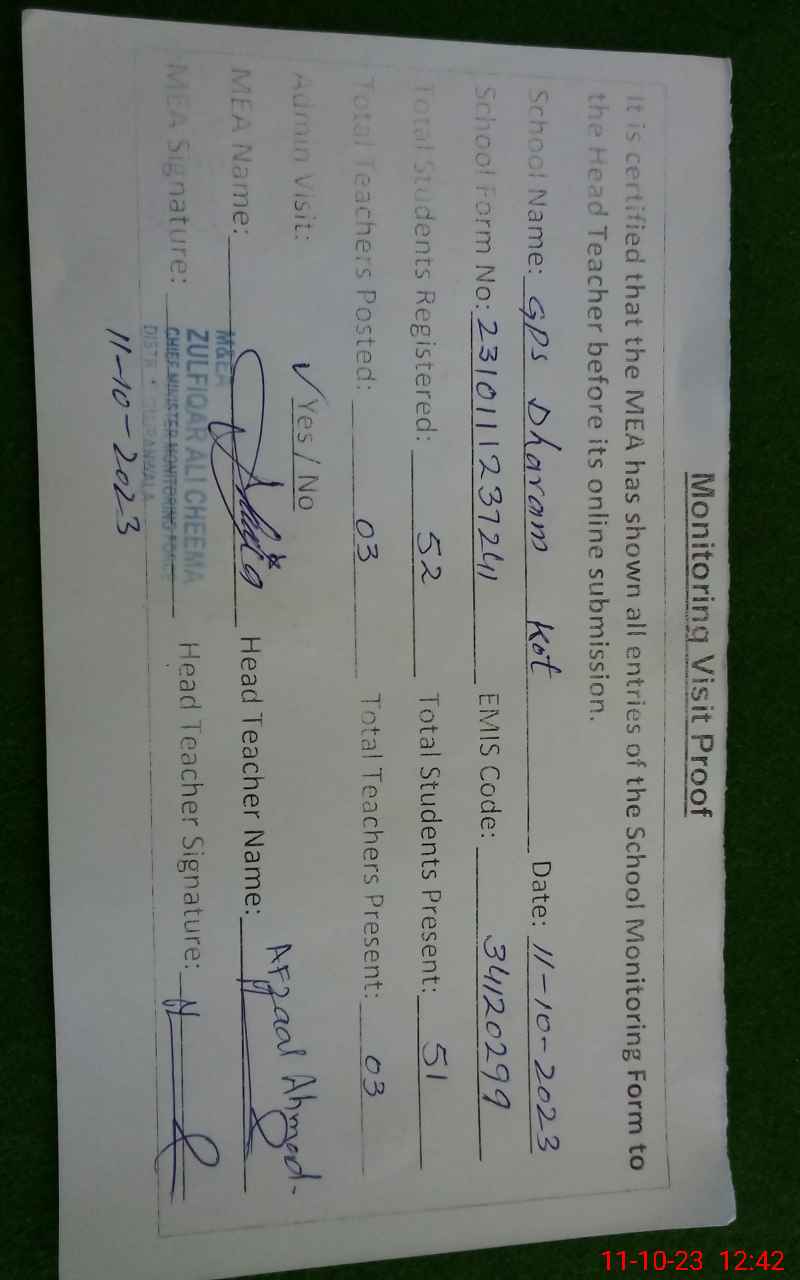 Monitoring Visit Proof
It is certified that the MEA has shown all entries of the School Monitoring Form to
the Head Teacher before its online submission.
School Name: GPS Dharam Kot Date: 11-10-2023
School Form No: 2310111237241 EMIS Code: 34120299
Total Students Registered: 52 Total Students Present: 51
Total Teachers Posted: 03 Total Teachers Present: 03
Admin Visit: ✓ Yes / No
MEA Name: Head Teacher Name: Afzaal Ahmad
MEA Signature: Head Teacher Signature:
M&EA
ZULFIQAR ALI CHEEMA
CHIEF MINISTER MONITORING FORCE
11-10-2023
11-10-23 12:42